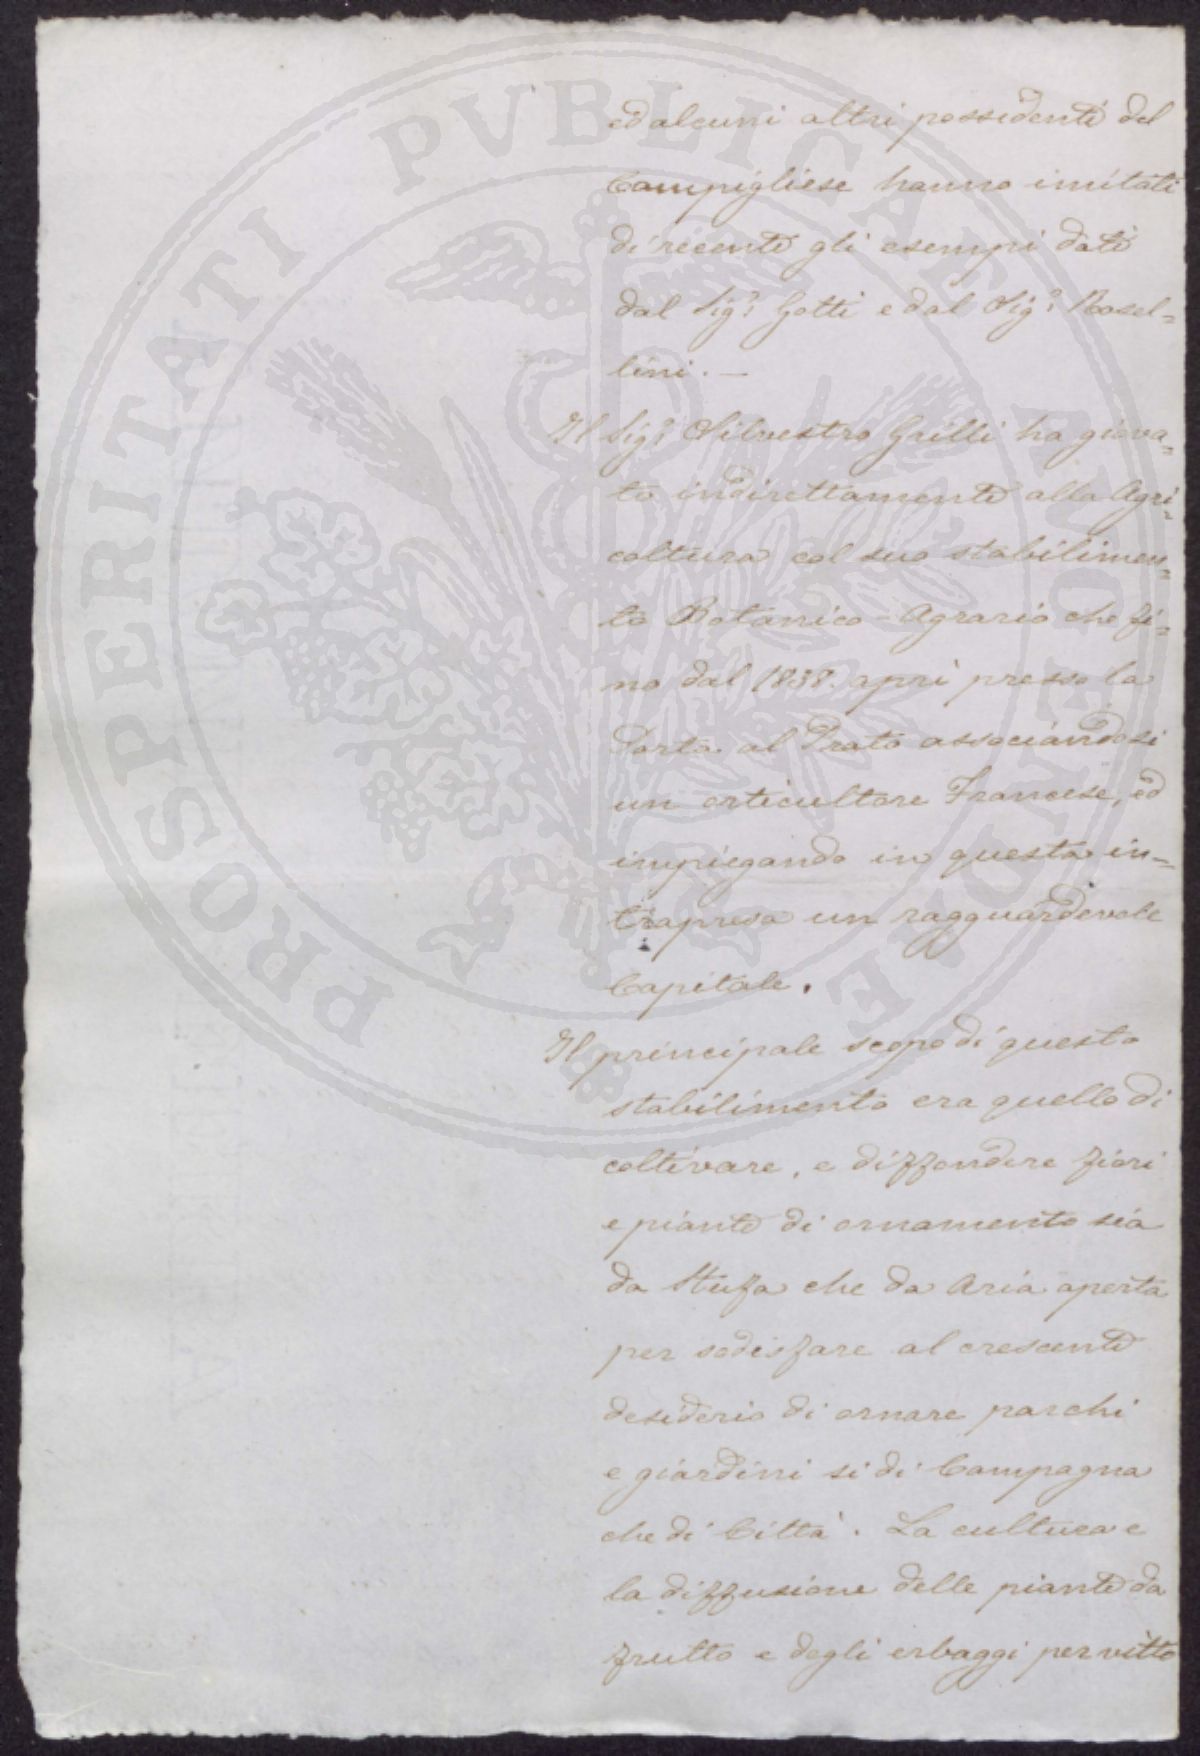 PROSPERITATI PVBLICAE AVGENDAE
ed alcuni altri possidenti del
Campigliese hanno imitati
di recente gli esempi dati
dal Sig.r Gotti e dal Sig.r Rosel=
lini. —
Il Sig.r Silvestro Grilli ha giova=
to indirettamente alla Agri=
coltura col suo stabilimen=
to Botanico-Agrario che fi=
no dal 1838. aprì presso la
Porta al Prato associandosi
un orticultore Francese, ed
impiegando in questa in=
trapresa un ragguardevole
Capitale.
Il principale scopo di questo
stabilimento era quello di
coltivare, e diffondere fiori
e piante di ornamento sia
da Stufa che da Aria aperta
per sodisfare al crescente
desiderio di ornare parchi
e giardini si di Campagna
che di Città. La cultura e
la diffusione delle piante da
frutto e degli erbaggi per vitto